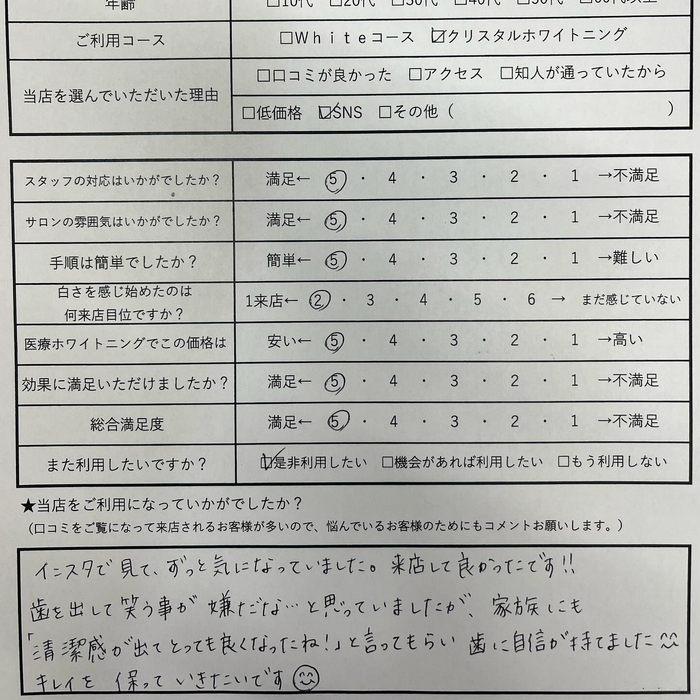 年齢 □10代 □20代 □30代 □40代 □50代 □60代以上
ご利用コース □Whiteコース ☑クリスタルホワイトニング
当店を選んでいただいた理由 □口コミが良かった □アクセス □知人が通っていたから
□低価格 ☑SNS □その他（ ）
スタッフの対応はいかがでしたか？ 満足← 5 ・ 4 ・ 3 ・ 2 ・ 1 →不満足
サロンの雰囲気はいかがでしたか？ 満足← 5 ・ 4 ・ 3 ・ 2 ・ 1 →不満足
手順は簡単でしたか？ 簡単← 5 ・ 4 ・ 3 ・ 2 ・ 1 →難しい
白さを感じ始めたのは
何来店目位ですか？ 1来店← 2 ・ 3 ・ 4 ・ 5 ・ 6 → まだ感じていない
医療ホワイトニングでこの価格は 安い← 5 ・ 4 ・ 3 ・ 2 ・ 1 →高い
効果に満足いただけましたか？ 満足← 5 ・ 4 ・ 3 ・ 2 ・ 1 →不満足
総合満足度 満足← 5 ・ 4 ・ 3 ・ 2 ・ 1 →不満足
また利用したいですか？ ☑是非利用したい □機会があれば利用したい □もう利用しない
★当店をご利用になっていかがでしたか？
（口コミをご覧になって来店されるお客様が多いので、悩んでいるお客様のためにもコメントお願いします。）
インスタで見て、ずっと気になっていました。来店して良かったです!!
歯を出して笑う事が嫌だな…と思っていましたが、家族にも
「清潔感が出てとっても良くなったね!」と言ってもらい 歯に自信が持てました
キレイを 保って いきたいです